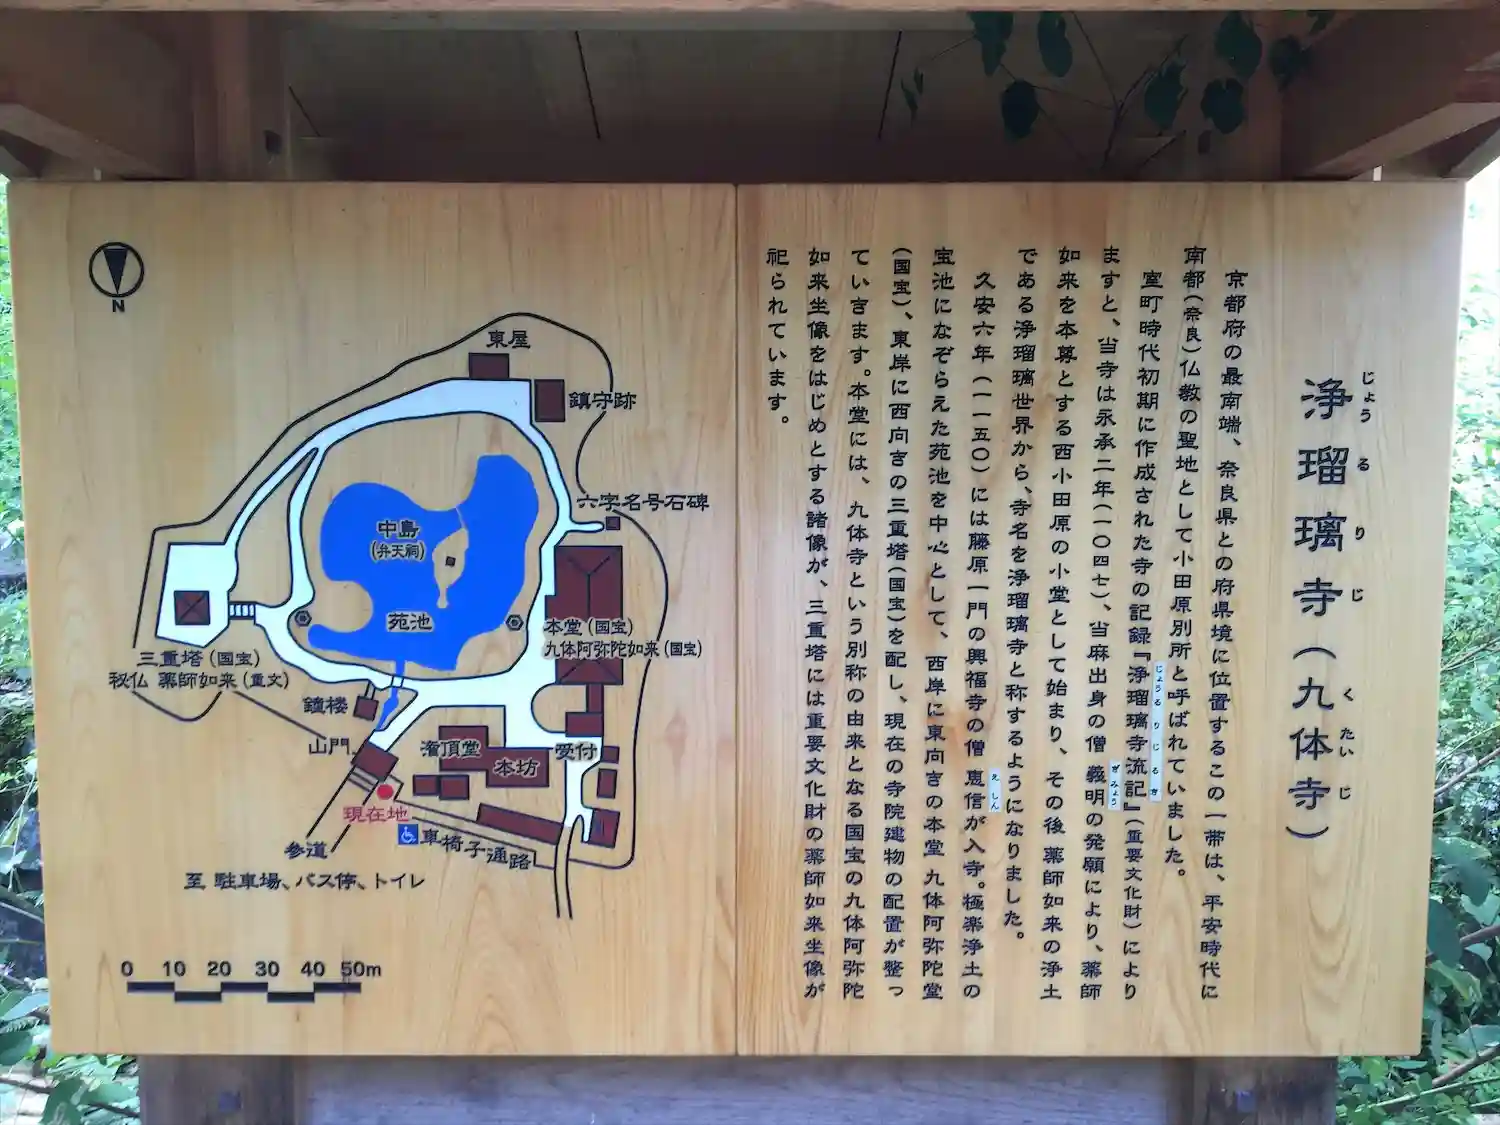 浄瑠璃寺(九体寺)
じょうるりじ くたいじ
京都府の最南端、奈良県との府県境に位置するこの一帯は、平安時代に
南都(奈良)仏教の聖地として小田原別所と呼ばれていました。
室町時代初期に作成された寺の記録『浄瑠璃寺流記』(重要文化財)により
じょうるりじるき
ますと、当寺は永承二年(一〇四七)、当麻出身の僧 義明の発願により、薬師
ぎみょう
如来を本尊とする西小田原の小堂として始まり、その後 薬師如来の浄土
である浄瑠璃世界から、寺名を浄瑠璃寺と称するようになりました。
久安六年(一一五〇)には藤原一門の興福寺の僧 恵信が入寺。極楽浄土の
えしん
宝池になぞらえた苑池を中心として、西岸に東向きの本堂 九体阿弥陀堂
(国宝)、東岸に西向きの三重塔(国宝)を配し、現在の寺院建物の配置が整っ
ていきます。本堂には、九体寺という別称の由来となる国宝の九体阿弥陀
如来坐像をはじめとする諸像が、三重塔には重要文化財の薬師如来坐像が
祀られています。
N
東屋
鎮守跡
六字名号石碑
中島
(弁天祠)
苑池
本堂(国宝)
九体阿弥陀如来(国宝)
三重塔(国宝)
秘仏 薬師如来(重文)
鐘楼
山門
潅頂堂
本坊
受付
現在地
車椅子通路
参道
至 駐車場、バス停、トイレ
0 10 20 30 40 50m